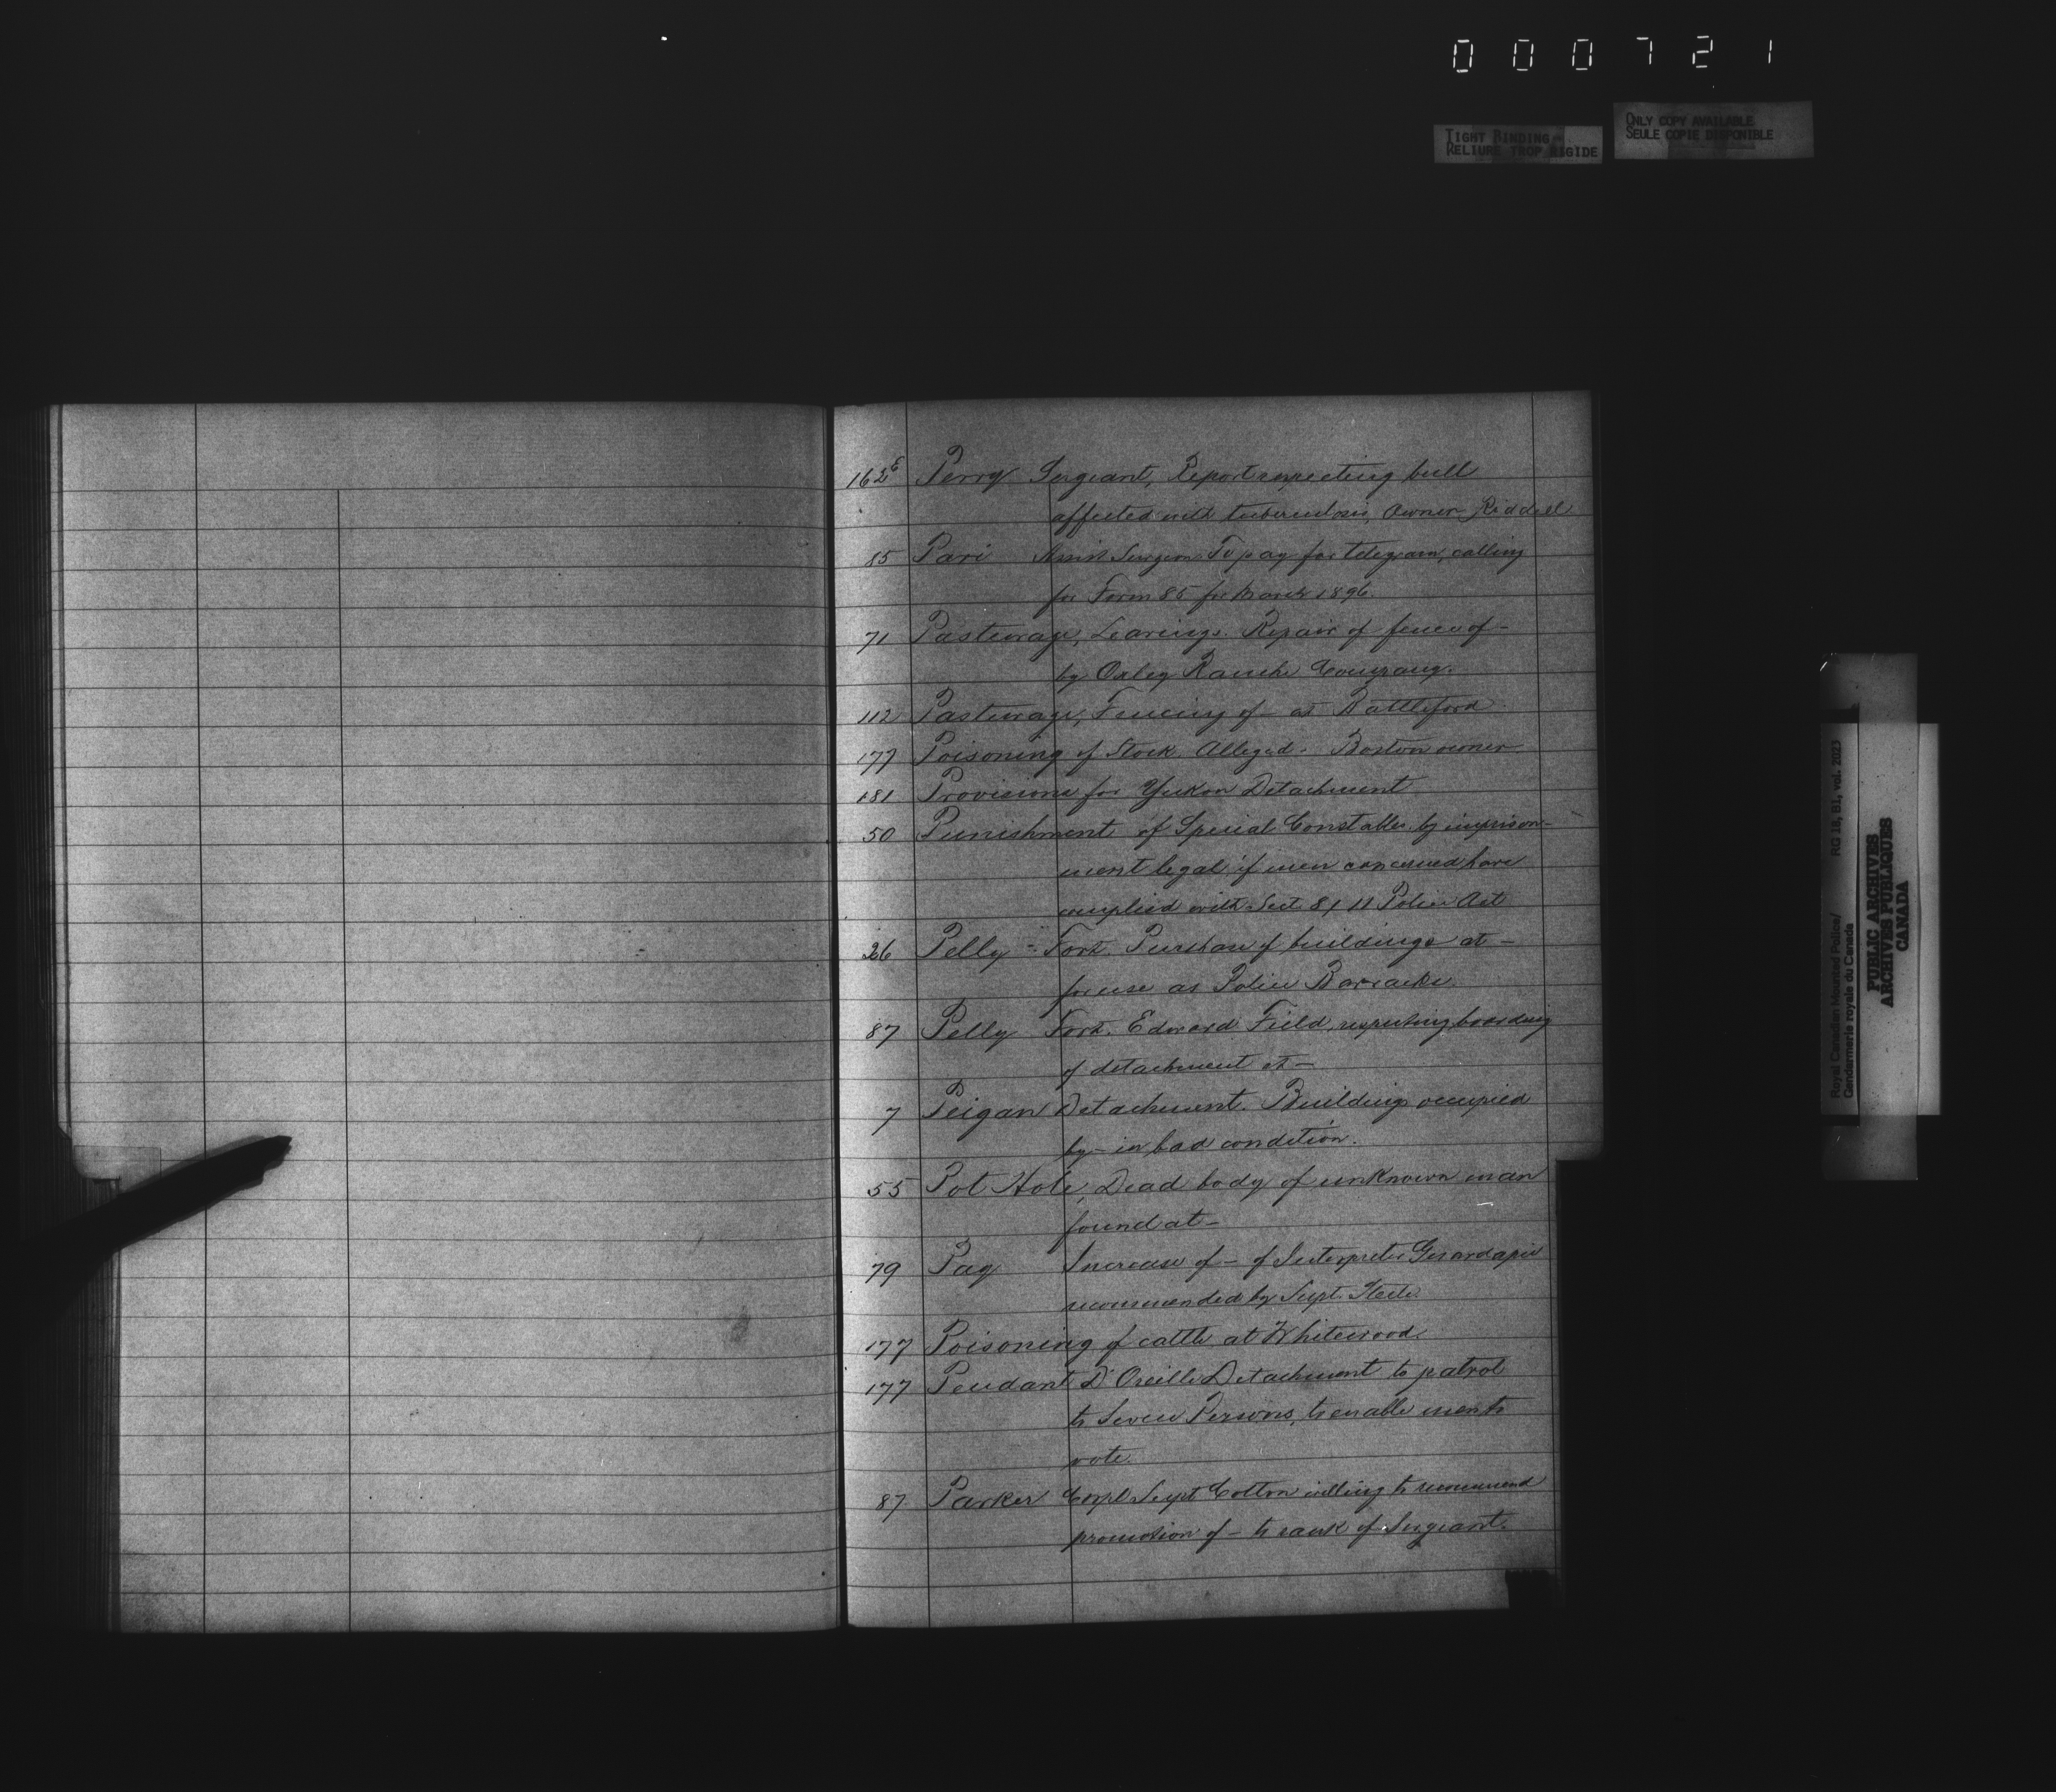 000721
TIGHT BINDING
RELIURE TROP RIGIDE
ONLY COPY AVAILABLE
SEULE COPIE DISPONIBLE
162E Perry Sergeant, Report respecting bull
affected with tuberculosis, Owner Riddell
85 Pari Assist Surgeon To pay for telegram, calling
for Form 85 for March 1896.
71 Pasturage, Leavings. Repair of fence of -
by Oxley Ranche Company.
112 Pasturage, Fencing of - at Battleford.
177 Poisoning of Stock. Alleged - owner
181 Provisions for Yukon Detachment
50 Punishment of Special Constables by imprison-
ment legal, if men concerned have
complied with Sect. 8, 11 Police Act
26 Pelly - Fort. Purchase of buildings at -
for use as Police Barracks.
87 Pelly Fort. Edward Field, respecting boarding
of detachment at -
7 Peigan Detachment. Buildings occupied
by - in bad condition.
55 Pot Hole, Dead body of unknown man
found at -
79 Pay Increase of - of Interpreter
recommended by Supt. Steele.
177 Poisoning of cattle at Whitewood.
177 Pendant D'Oreille Detachment to patrol
to Seven Persons, to enable men to
vote.
87 Parker Corpl Supt Cotton willing to recommend
promotion of - to rank of Sergeant.
Royal Canadian Mounted Police/
Gendarmerie royale du Canada
RG 18, B1, vol. 2023
PUBLIC ARCHIVES
ARCHIVES PUBLIQUES
CANADA